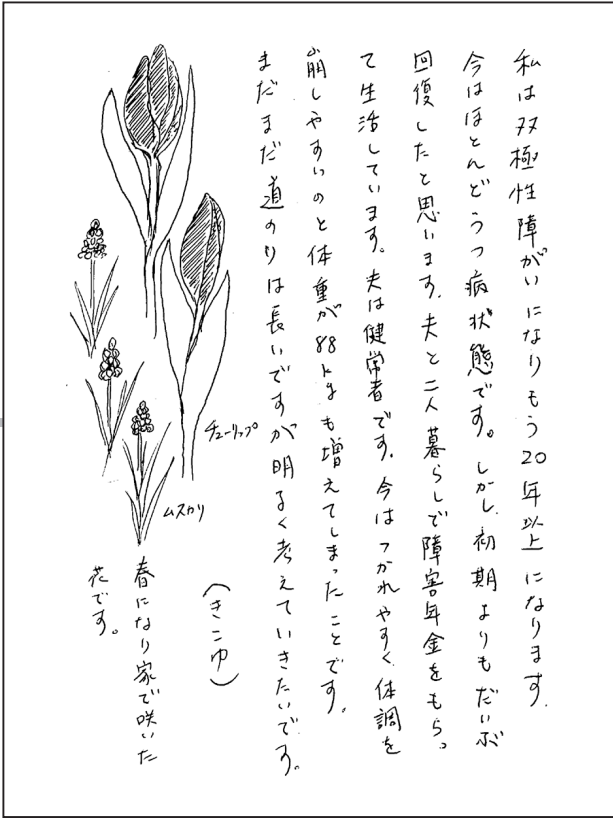 私は双極性障がいになりもう20年以上になります.
今はほとんどうつ病状態です。しかし、初期よりもだいぶ
回復したと思います.夫と二人暮らしで障害年金をもらっ
て生活しています。夫は健常者です.今はつかれやすく、体調を
崩しやすいのと体重が88kgも増えてしまったことです.
まだまだ道のりは長いですが明るく考えていきたいです。
(きこゆ)
チューリップ
ムスカリ
春になり家で咲いた
花です。